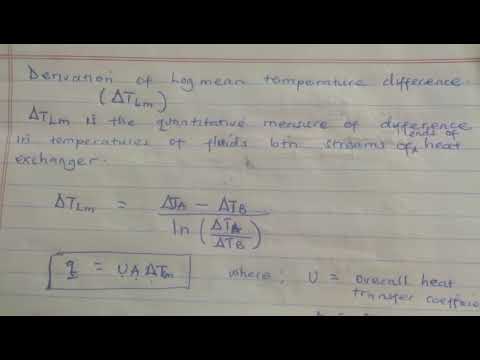 Derivation of Log mean temperature difference.
(ΔTLm)
ΔTLm is the quantitative measure of difference
in temperatures of fluids btn streams of ends of heat
exchanger.
ΔTLm = ΔTA − ΔTB / ln (ΔTA / ΔTB)
q = UAΔTm where; U = overall heat
transfer